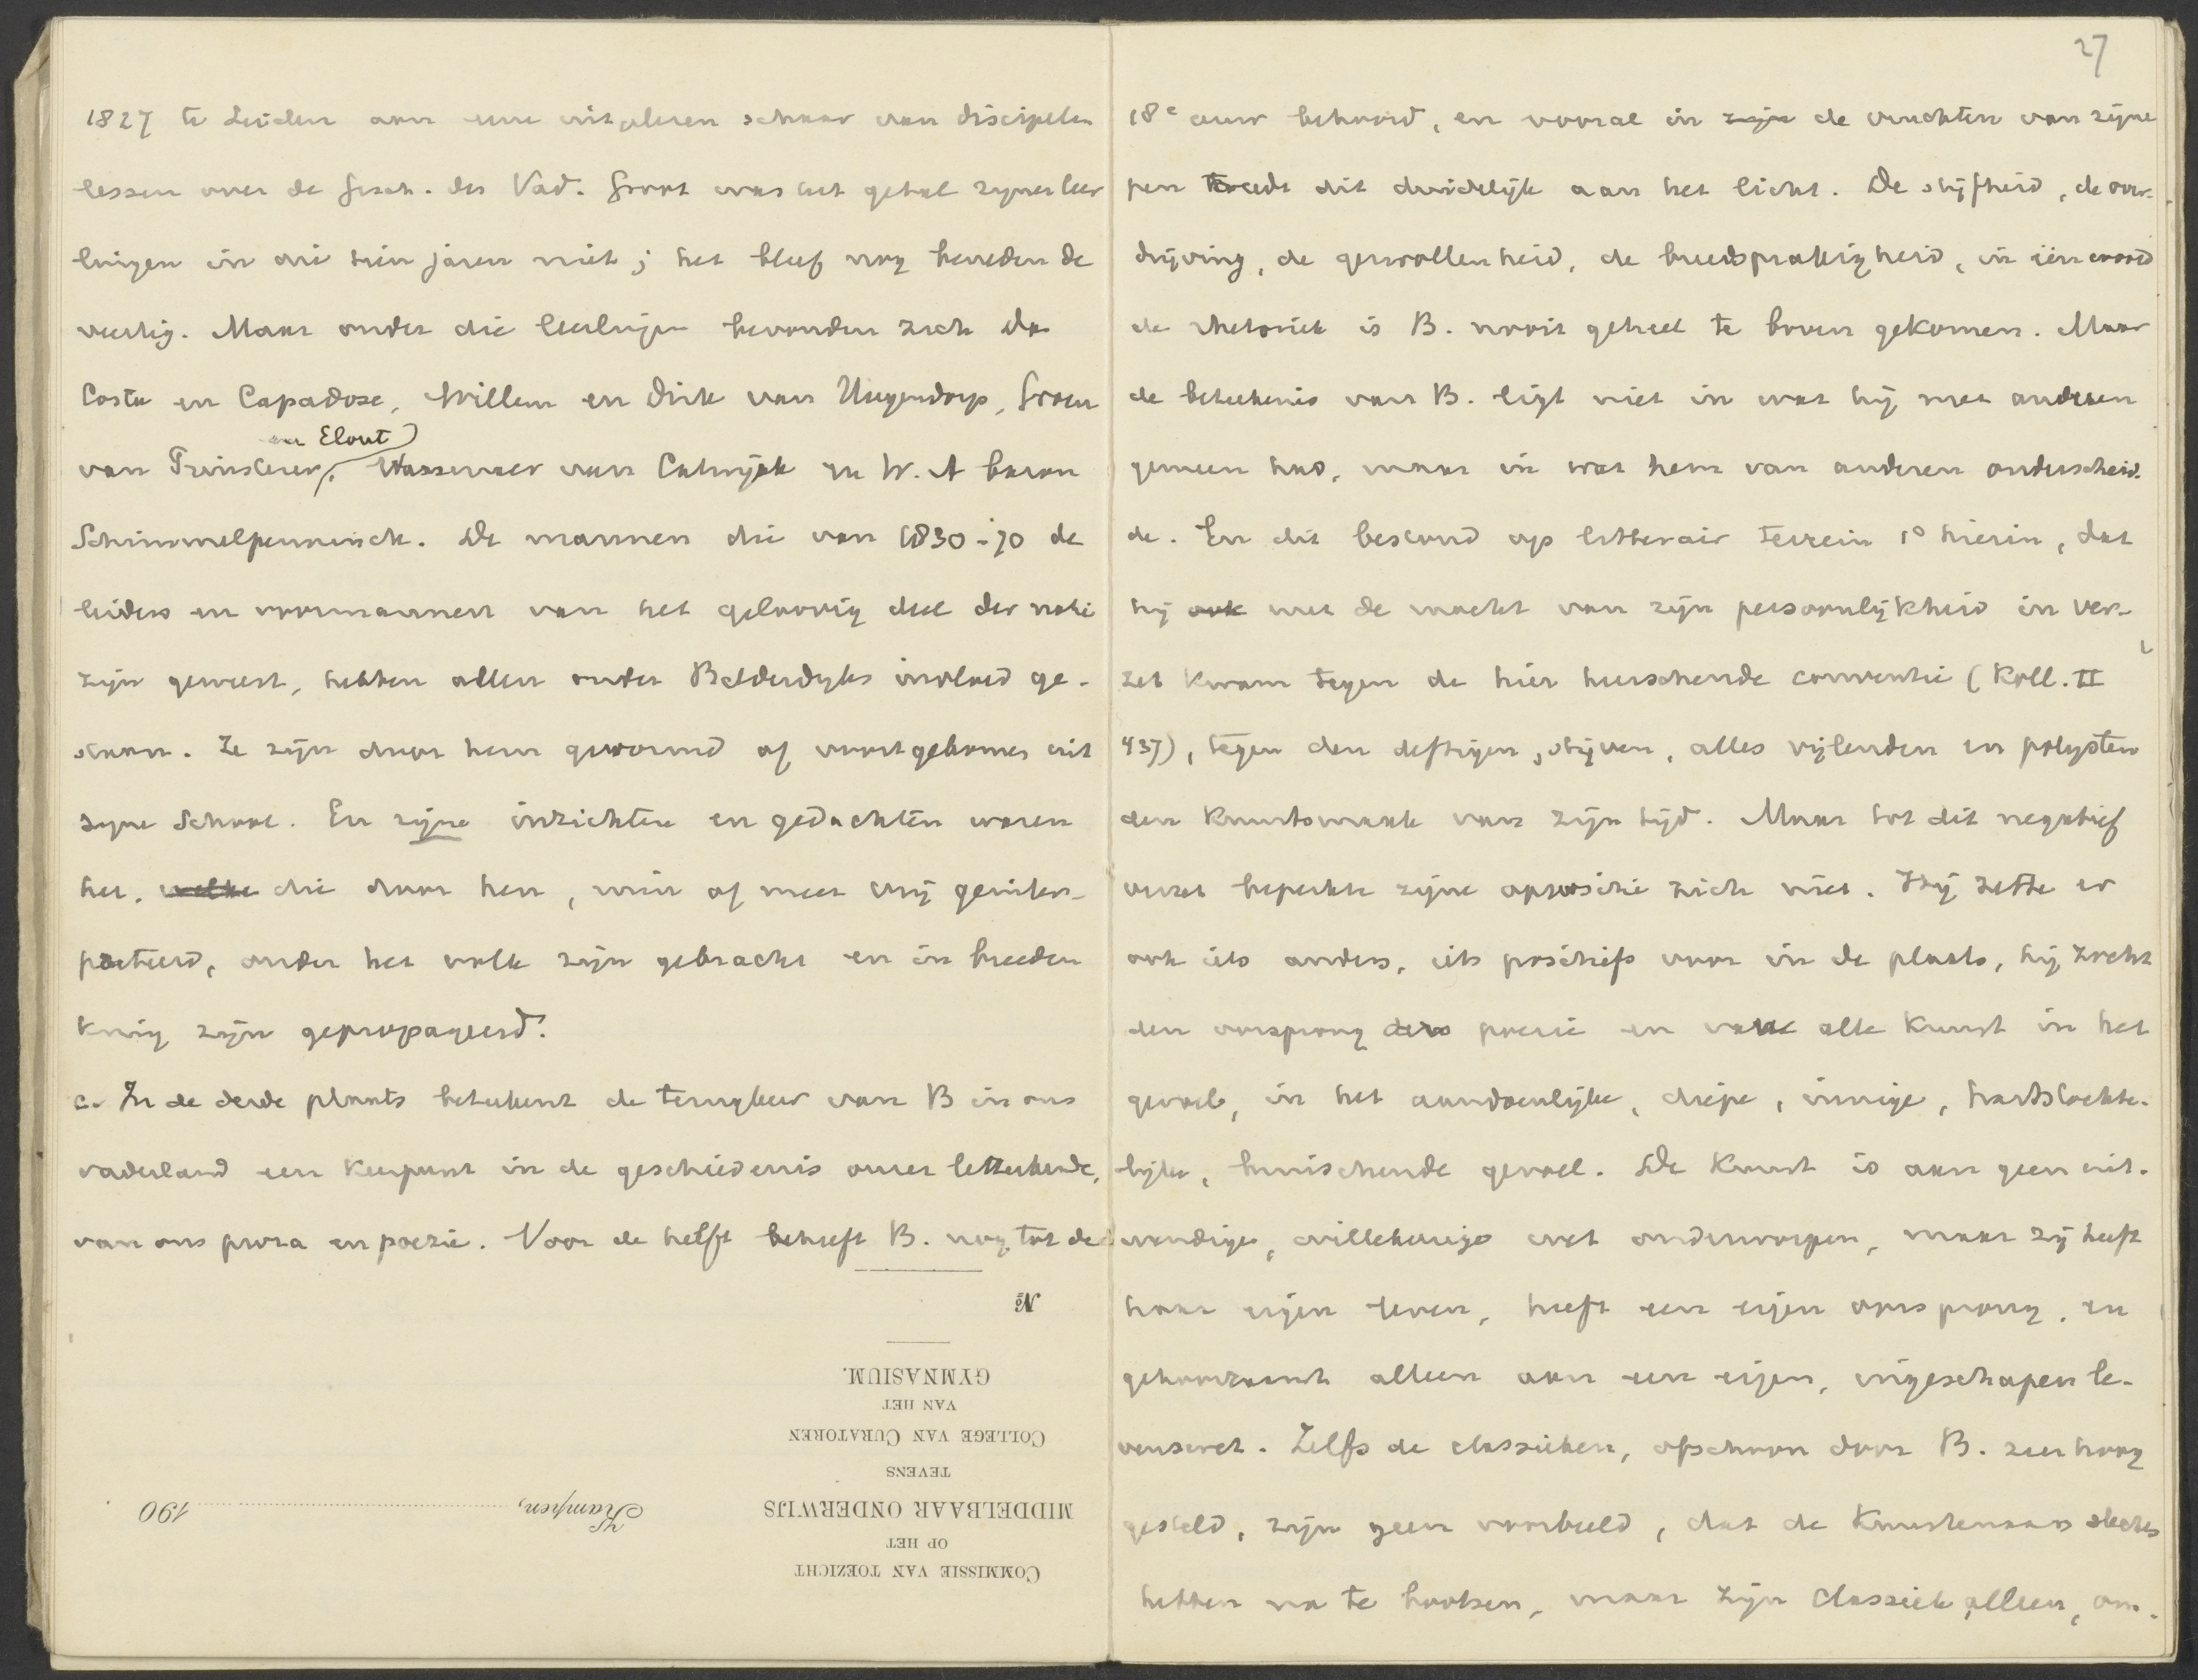 1827 te Leiden aan eene uitgelezen schaar van discipelen
lessen over de Gesch. des Vad. Groot was het getal zijner leer
lingen in die tien jaren niet; het bleef nog beneden de
veertig. Maar onder die leerlingen bevonden zich Da
Costa en Capadose, Willem en Dirk van Hogendorp, Groen
van Prinsterer, Wassenaer van Catwijck en W. A baron
en Elout
Schimmelpenninck. De mannen die van 1830-70 de
leiders en voormannen van het geloovig deel der natie
zijn geweest, hebben allen onder Bilderdijks invloed ge-
staan. Ze zijn door hem gevormd of voortgekomen uit
zijne School. En zijne inzichten en gedachten waren
het, welke die door hen, min of meer vrij geïnter-
preteerd, onder het volk zijn gebracht en in breeden
kring zijn gepropageerd.
c. In de derde plaats beteekent de terugkeer van B in ons
vaderland een keerpunt in de geschiedenis onzer letterkunde,
van ons proza en poezie. Voor de helft behoeft B. nog tot de
No
GYMNASIUM.
VAN HET
COLLEGE VAN CURATOREN
TEVENS
MIDDELBAAR ONDERWIJS
OP HET
COMMISSIE VAN TOEZICHT
Kampen, 190
27
18e eeuw behoord, en vooral in zijn de vruchten van zijne
pen treedt dit duidelijk aan het licht. De stijfheid, de over-
drijving, de gezwollenheid, de breedsprakigheid, in één woord
de rhetoriek is B. nooit geheel te boven gekomen. Maar
de beteekenis van B. ligt niet in wat hij met anderen
gemeen had, maar in wat hem van anderen onderscheid-
de. En dit bestond op litterair terrein 1o hierin, dat
hij ook met de macht van zijn persoonlijkheid in ver-
zet kwam tegen de hier heerschende conventie (Koll. II
437), tegen den deftigen, stijven, alles vijlenden en polijsten
den Kunstsmaak van zijn tijd. Maar tot dit negatief
verzet beperkte zijne oppositie zich niet. Hij zette er
ook iets anders, iets positiefs voor in de plaats, hij zocht
den oorsprong der poezie en van alle Kunst in het
gevoel, in het aandoenlijke, diepe, innige, hartstochte-
lijke, bruischende gevoel. De Kunst is aan geen uit-
wendige, willekeurige wet onderworpen, maar zij heeft
haar eigen leven, heeft een eigen oorsprong, en
gehoorzaamt alleen aan een eigen, ingeschapen le-
venswet. Zelfs de classieken, ofschoon door B. zeer hoog
gesteld, zijn geen voorbeeld, dat de Kunstenaars slechts
hebben na te bootsen, maar zijn classiek alleen, om-